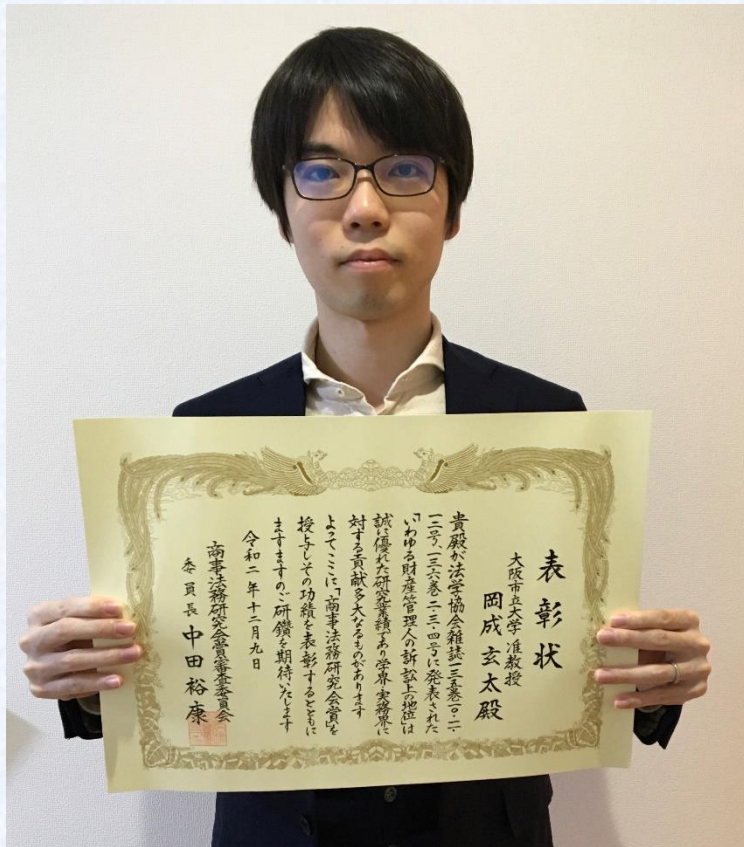 表彰状
大阪市立大学 准教授
岡成玄太殿
貴殿が法学協会雑誌一三五巻一〇・一一・
一二号、一三六巻二・三・四号に発表された
「いわゆる財産管理人の訴訟上の地位」は
誠に優れた研究業績であり学界・実務界に
対する貢献多大なるものがあります
よってここに「商事法務研究会賞」を
授与しその功績を表彰するとともに
ますますのご研鑽を期待いたします
令和二年十二月九日
商事法務研究会賞審査委員会
委員長 中田裕康